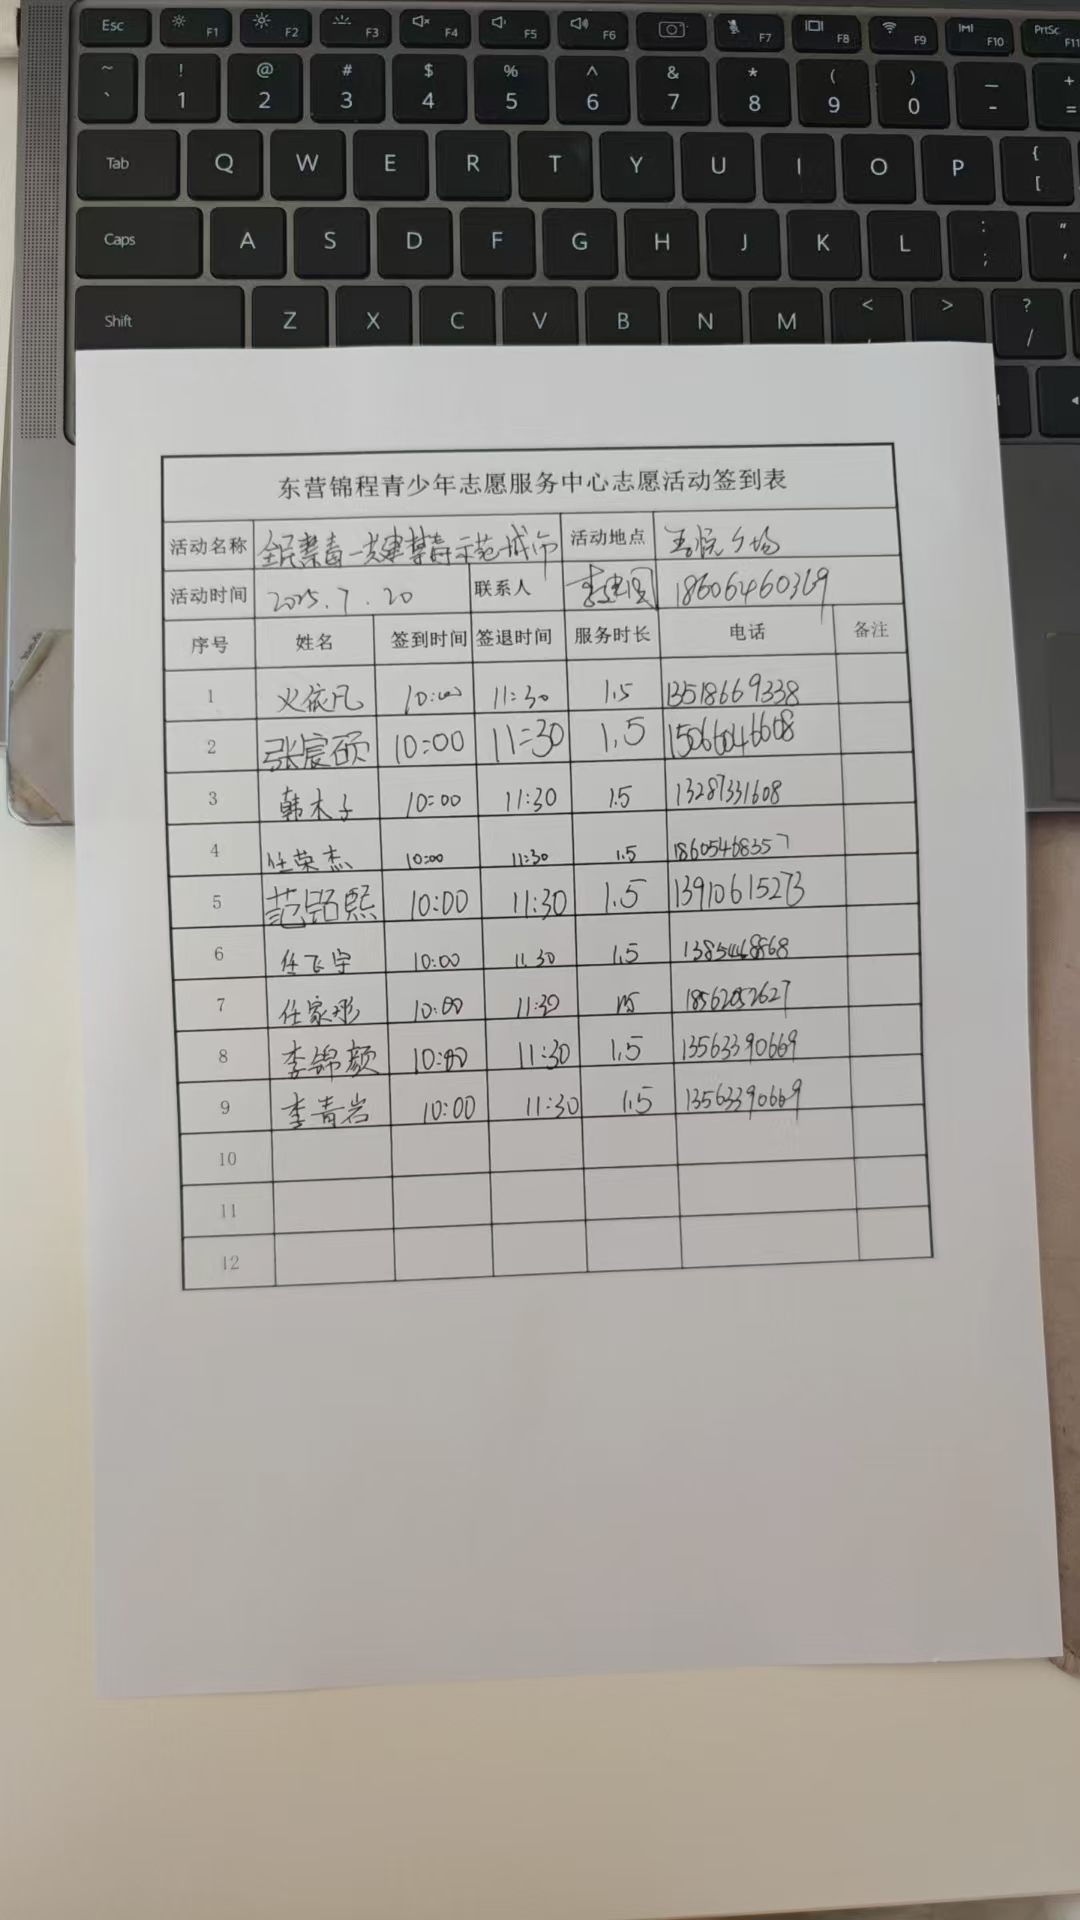 Esc F1 F2 F3 F4 F5 F6 F7 F8 F9 F10 PrtSc F11
~ ` ! 1 @ 2 # 3 $ 4 % 5 ^ 6 & 7 * 8 ( 9 ) 0 — - + =
Tab Q W E R T Y U I O P { [
Caps A S D F G H J K L : ; " '
Shift Z X C V B N M < , > ? /
东营锦程青少年志愿服务中心志愿活动签到表
活动名称 全民禁毒一共建禁毒示范城市 活动地点 吾悦广场
活动时间 2025.7.20 联系人 18606460369
序号 姓名 签到时间 签退时间 服务时长 电话 备注
1 火依凡 10:00 11:30 1.5 13518669338
2 张宸硕 10:00 11:30 1.5 15066046608
3 韩木子 10:00 11:30 1.5 13287331608
4 任荣杰 10:00 11:30 1.5 18605468357
5 范铭熙 10:00 11:30 1.5 13910615273
6 任飞宇 10:00 11:30 1.5
7 任家彤 10:00 11:30 1.5 18562052627
8 李锦颜 10:00 11:30 1.5 13563390669
9 李青岩 10:00 11:30 1.5 13563390669
10
11
12